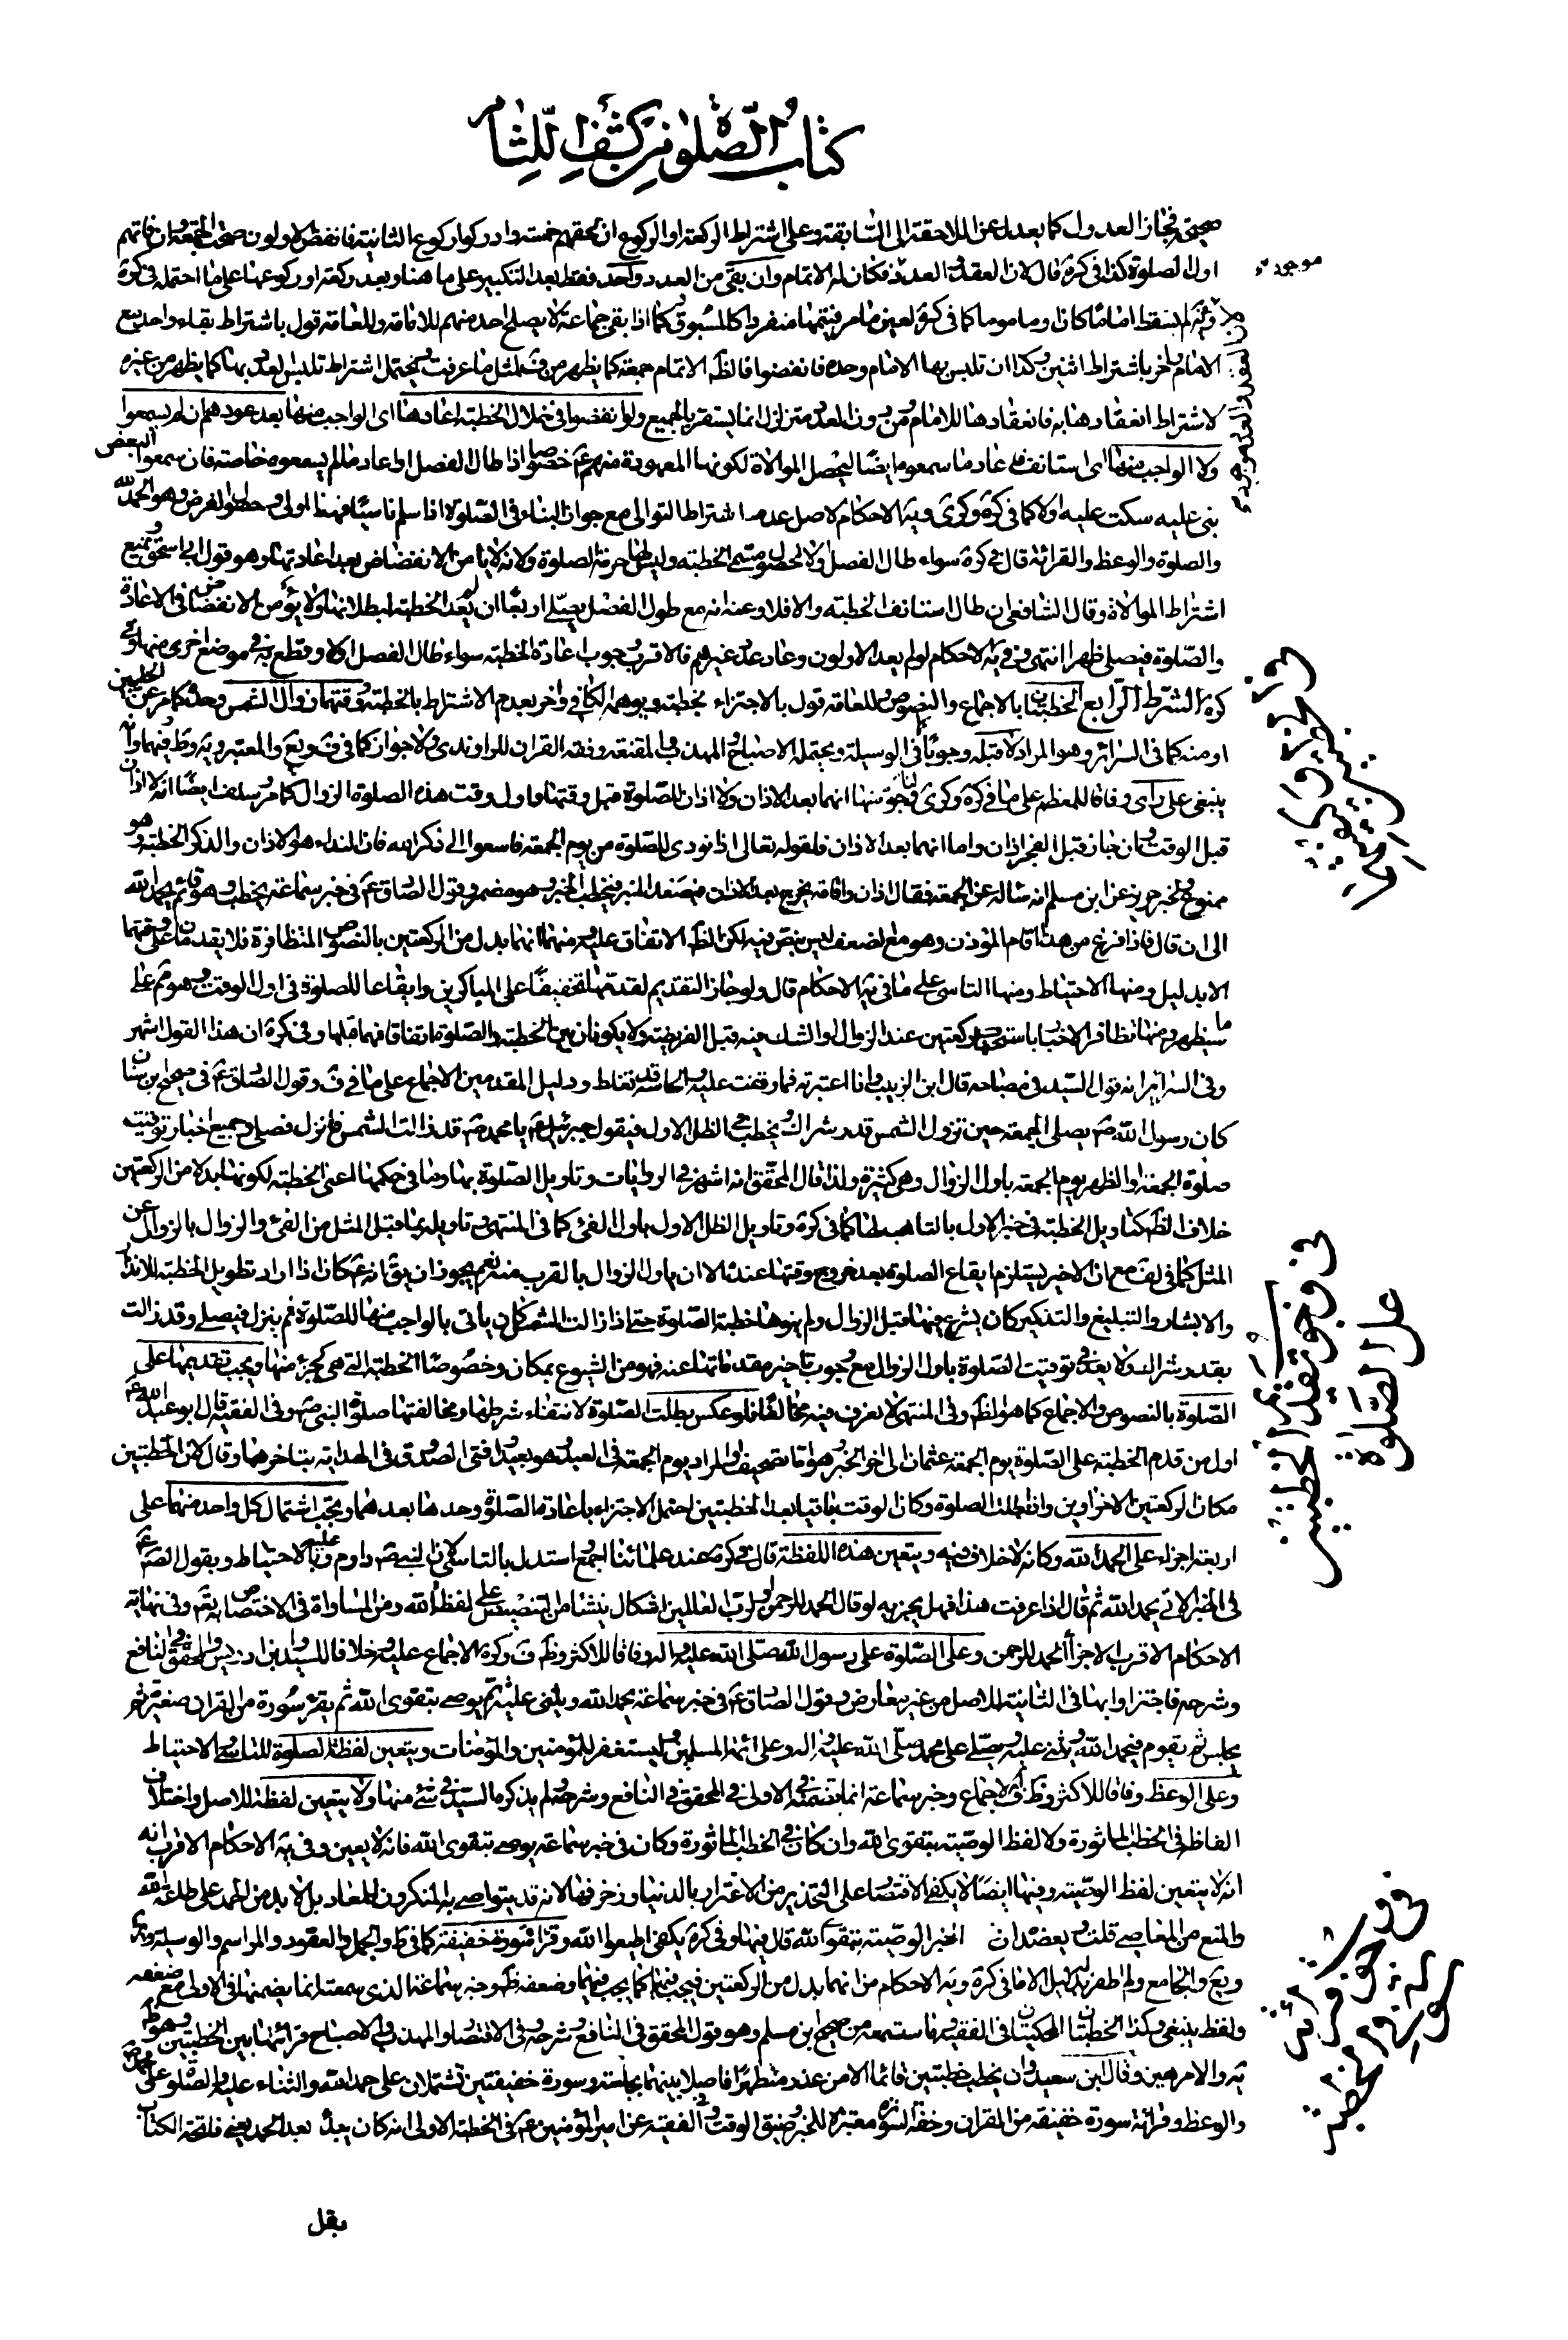 كتاب الصلوة من كشف اللثام
صحيحة فجاز العدول كما يعدل عن اللاحقة الى السابقة وعلى اشتراط الركعة او الركوع ان لحقهم خمسة وادركوا ركوع الثانية فانفض الاولون صحت الجمعة وان فاتهم
اول الصلوة كذا في كرة قال لان العقد العدد فكان له الاتمام وان بقى من العدد واحد فقط بعد التكبير على ما هنا وبعد ركعة او ركوعها على ما احتمله في كرة
موجود
لم يسقط اماما كان او ماموما كما في كرة لعين ما مر فيتمها منفردا كالمسبوق كما اذا بقى جماعة لا يصلح احد منهم للامامة وللعامة قول باشتراط بقاء واحد مع
الامام واخر باشتراط اثنين وكذا ان تلبس بها الامام وحده فانفضوا فالظ الاتمام جمعة كما يظهر من ف لمثل ما عرفت ويحتمل اشتراط تلبس العدد بها كما يظهر من غيره
لاشتراط انعقادها به فانعقادها للامام من دون العدد متزلزل انما يستقر بالجميع ولو انفضوا في خلال الخطبة اعادها اى الواجب منها بعد عودهم ان لم يسمعوا
اولا الواجب منها اى استانف ما سمعوه ايضا ليحصل الموالاة لكونها المعهودة منهم ع خصوصا اذا طال الفصل او اعاد ما لم يسمعوه خاصة فان سمعوا البعض
بنى على ما سكت عليه اولا كما في كرة وكرى وية الاحكام لاصل عدم اشتراط التوالى مع جواز البناء في الصلوة اذا سلم ناسيا فهنا اولى وحصول الغرض وهو الحمد لله
والصلوة والوعظ والقرائة قال في كرة سواء طال الفصل اولا لحصول مسمى الخطبة وليس لها حرمة الصلوة ولانه لا يامن الانفضاض بعد اعادتها وهو قول ابى اسحق ونمنع
اشتراط الموالاة وقال الشافعى ان طال استانف الخطبة والا فلا وعنه انه مع طول الفصل يصلى اربعا ان لم يعد الخطبة لبطلانها ولا يؤمن الانفضاض في الاعادة
والصلوة فيصلى ظهرا انتهى وفي ية الاحكام لو لم يعد الاولون وعاد عدد غيرهم فالاقرب وجوب اعادة الخطبة سواء طال الفصل او لا وقطع به في موضع اخرى منها وفي
كرة الشرط الرابع الخطبتان بالاجماع والنصوص وللعامة قول بالاجتزاء بخطبة ويوهمه الكافي واخر بعدم الاشتراط بالخطبة ووقتهما زوال الشمس وحده كما مر عن الحلبيين
او منه كما في السرائر وهو المراد لا قبله وجوبا في الوسيلة ويحتمله الاصباح والمهذب والمقنعة وفقه القران للراوندى ولا جواز كما في ف وبع والمعتبر وية وط فيهما وانه
ينبغي على راى وفاقا للمعظم على ما في كرة وكرى لنا وجوه منها انهما بعد الاذان ولا اذان للصلوة قبل وقتها واول وقت هذه الصلوة الزوال كما مر وسلف ايضا انه لا اذان
قبل الوقت وان جاز قبل الفجر اذان واما انهما بعد الاذان فلقوله تعالى اذا نودى للصلوة من يوم الجمعة فاسعوا الى ذكر الله فان النداء هو الاذان والذكر الخطبة وهو
ممنوع ولخبر حريز عن ابن مسلم انه سأله عن الجمعة فقال اذان واقامة يخرج بعد الاذان فيصعد المنبر فيخطب الخبر وهو مضمر وقول الصادق ع في خبر سماعة يخطب وهو قائم يحمد الله
الى ان قال فاذا فرغ من هذا اقام المؤذن وهو مع الضعف ليس بنص فيه لكن الظ الاتفاق عليه ومنها انهما بدل من الركعتين بالنصوص المتظافرة فلا يقدمان على وقتهما
الا بدليل ومنها الاحتياط ومنها التاسى على ما في ية الاحكام قال ولو جاز التقديم لقدمها تخفيفا على المباكرين وايقاعا للصلوة في اول الوقت وهو تم على
ما سيظهر ومنها تظافر الاخبار باستحباب ركعتين عند الزوال او الشك فيه قبل الفريضة ولا يكونان بين الخطبة والصلوة اتفاقا فهما قبلها وفي كرة ان هذا القول اشهر
وفي السرائر انه قول السيد في مصباحه قال ابن الربيب وانا اعتبرته فما وقفت عليه ولعله قد تغلط ودليل المقدمين الاجماع على ما في ف وقول الصادق ع في صحيح ابن سنان
كان رسول الله ص يصلى الجمعة حين تزول الشمس قدر شراك ويخطب في الظل الاول فيقول جبرئيل ع يا محمد ص قد زالت الشمس فانزل فصل وجميع اخبار توقيت
صلوة الجمعة او الظهر يوم الجمعة باول الزوال وهي كثيرة ولذا قال المحقق انه اشهر في الروايات وتاويل الصلوة بها وما في حكمها اعنى الخطبة لكونها بدلا من الركعتين
خلاف الظ كتاويل الخطبة في خبر الاول بالتاهب لها كما في كرة وتاويل الظل الاول باول الفئ كما في المنتهى وتاويله بما قبل المثل من الفئ والزوال بالزوال عن
المثل كما في لف مع ان الاخير يستلزم ايقاع الصلوة بعد خروج وقتها عنده الا ان ياول الزوال بالقرب منه نعم يجوز ان يق انه ع كان اذا اراد تطويل الخطبة للانذار
والابشار والتبليغ والتذكير كان يشرع فيها قبل الزوال ولم ينوها خطبة الصلوة حتى اذا زالت الشمس كان ياتى بالواجب منها للصلوة ثم ينزل فيصلى وقد زالت
بقدر شراك ولا بعد في توقيت الصلوة باول الزوال مع وجوب تاخير مقدماتها عنه فهو من الشيوع بمكان وخصوصا الخطبة التى هى كجزء منها ويجب تقديمها على
الصلوة بالنصوص والاجماع كما هو الظ وفي المنتهى لا نعرف فيه مخالفا فلو عكس بطلت الصلوة لانتفاء شرطها ومخالفتها صلوة النبى ص وفي الفقيه قال ابو عبد الله ع
اول من قدم الخطبة على الصلوة يوم الجمعة عثمان الى اخر الخبر وهو اما تصحيف او المراد يوم الجمعة في العيد وهو بعيد وافتى الصدوق في الهداية بتاخرهما وقال لان الخطبتين
مكان الركعتين الاخراوين واذا بطلت الصلوة وكان الوقت باقيا بعد الخطبتين احتمل الاجتزاء باعادة الصلوة وحدها بعدهما ويجب اشتمال كل واحد منهما على
اربعة اجزاء على الحمد لله وكانه لا خلاف فيه ويتعين هذه اللفظة قال في كرة عند علمائنا اجمع استدل بالتاسى لان النبى ص داوم عليه وبالاحتياط وبقول الص ع
في الخبر الاتى يحمد الله ثم قال اذا عرفت هذا فهل يجزيه لو قال الحمد للرحمن او لرب العالمين اشكال ينشا من التنصيص على لفظة الله ومن المساواة في الاختصاص به تع وفي نهاية
الاحكام الاقرب الاجزاء الحمد للرحمن وعلى الصلوة على رسول الله صلى الله عليه واله وفاقا للاكثر وظ ف وكرة الاجماع عليه وخلافا للسيد وابن ادريس والمحقق في النافع
وشرحه فاجتزاوا بها في الثانية للاصل من غير معارض وقول الصادق ع في خبر سماعة يحمد الله ويثنى عليه ثم يوصى بتقوى الله ثم يقرء سورة من القران صغيرة ثم
يجلس ثم يقوم فيحمد الله ويثنى عليه ويصلى على محمد صلى الله عليه واله وعلى ائمة المسلمين ويستغفر للمؤمنين والمؤمنات ويتعين لفظة الصلوة للتاسى والاحتياط
وعلى الوعظ وفاقا للاكثر وظ ف الاجماع وخبر سماعة انما تضمنه في الاولى والمحقق في النافع وشرحه ولم يذكره السيد في شئ منها ولا يتعين لفظه للاصل واختلاف
الفاظ في الخطب الماثورة ولا لفظ الوصية بتقوى الله وان كان في الخطب الماثورة وكان في خبر سماعة يوصى بتقوى الله فانه لا يعين وفي ية الاحكام الاقرب انه
انه لا يتعين لفظ الوصية وفيها ايضا لا يكفى الاقتصار على التحذير من الاغترار بالدنيا وزخرفها لانه قد يتواصى به المنكرون للمعاد بل لابد من الحمل على طاعة الله
والمنع من المعاصى قلت ويعضد ان الخبر الوصية بتقوى الله قال فيها وفي كرة يكفى اطيعوا الله وقرائة سورة خفيفة كما في ط والجمل والعقود والمراسم والوسيلة وئر
ويع والجامع ولم اظفر له بدليل الا ما في كرة وية الاحكام من انهما بدل من الركعتين فيجب فيهما كما يجب فيهما وضعفه ظ وخبر سماعة الذى سمعته انما يضمنها في الاولى مع ضعفه
ولفظ ينبغي وكذا الخطبتان المحكيتان في الفقيه وما ستسمعه من صحيح ابن مسلم وهو قول المحقق في النافع وشرحه وفي الاقتصاد والمهذب والاصباح قرائتها بين الخطبتين وهو ظ
ية والامر هين وقال ابن سعيد وان يخطب خطبتين قائما الا من عذر متطهرا فاصلا بينهما بجلسة وسورة خفيفتين تشتملان على حمد الله والثناء عليه والصلوة على محمد ص
والوعظ وقرائة سورة خفيفة من القران وخفة السورة معتبرة للخبر وضيق الوقت وفي الفقيه عن امير المؤمنين ع في الخطبة الاولى انه كان يبدء بعد الحمد يعنى فاتحة الكتاب
بقل
في وجوب تقديم الخطبتين
على الصلاة